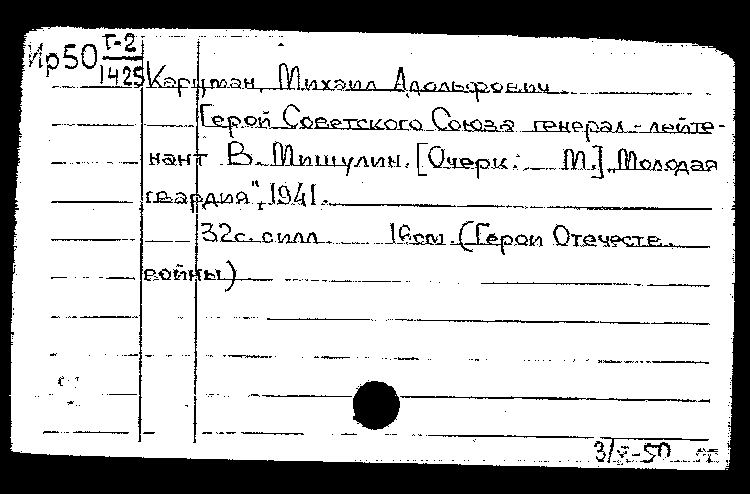 Ир50 Г-2
1425
Карцман, Михаил Адольфович.
Герой Советского Союза генерал-лейте-
нант В. Мишулин. [Очерк: М.] „Молодая
гвардия", 1941.
32с. с илл. 16см. (Герои Отечеств.
войны)
3/V-50